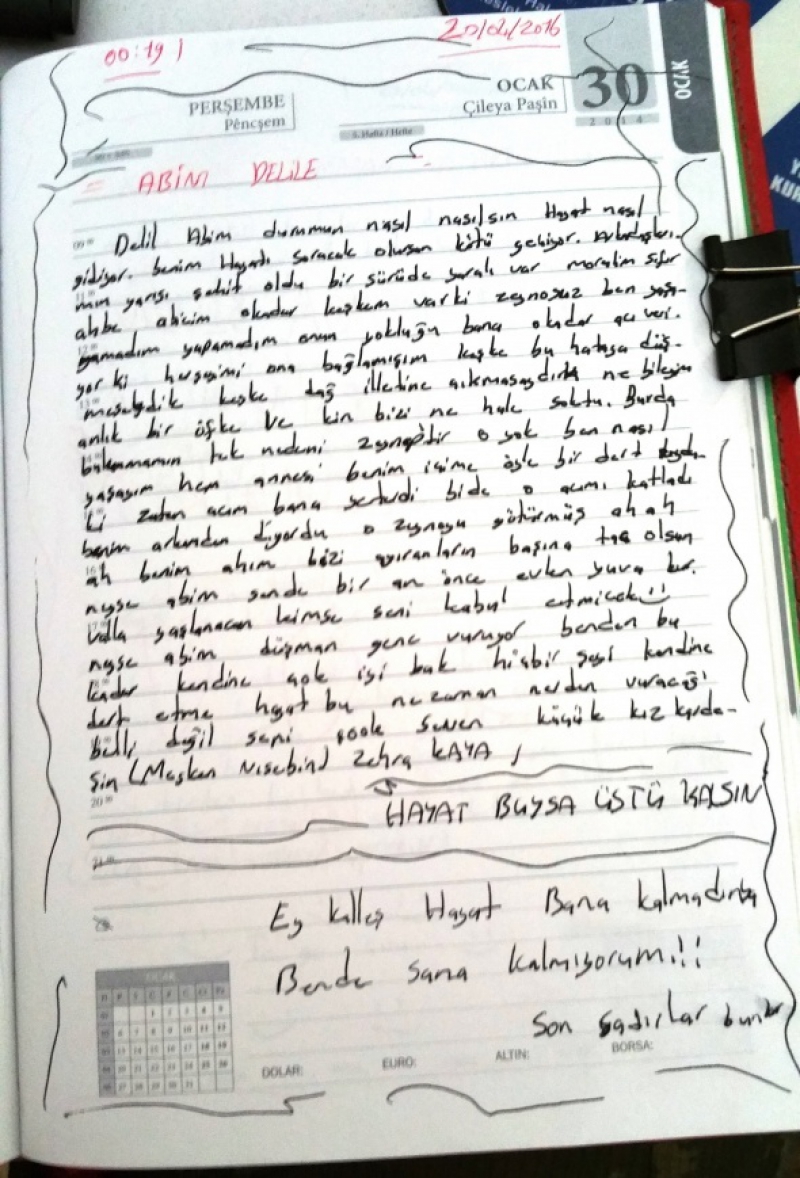 00:19
20/04/2016
PERŞEMBE
Pêncşem
5. Hafta / Hefte
OCAK
Çileya Paşîn
30
2014
OCAK
= ABİM DELİLE
Delil Abim durumun nasıl nasılsın Hayat nasıl
gidiyor. benim Hayatı soracak olursan kötü geçiyor. Arkadaşları-
mın yarısı şehit oldu bir sürüde yaralı var moralim sıfır
ahbe abicim okadar keşkem varki zeynosuz ben yaşa-
yamadım yapamadım onun yokluğu bana okadar acı veri-
yor ki herşeyimi ona bağlamışım keşke bu hataya düş-
meseydik keşke dağ illetine çıkmasaydık ne bileyim
anlık bir öfke ve kin bizi ne hale soktu. Burda
tek nedeni zeyneptir o yok ben nasıl
yaşayım hem annesi benim içime öyle bir dert
ki zaten acım bana yeterdi bide o acımı katladı
benim arkamdan diyordu o zeynoyu götürmüş ah ah
ah benim ahım bizi ayıranların başına taş olsun
neyse abim sende bir an önce evlen yuva kur.
Valla yaşlanacan kimse seni kabul etmicek!!
neyse abim düşman gene vuruyor benden bu
kadar kendine çok iyi bak hiçbir şeyi kendine
dert etme hayat bu nezaman nerden vuracağı
belli değil seni çook seven küçük kız karde-
şin (Meşken Nisebin) Zehra KAYA
20
HAYAT BUYSA ÜSTÜ KALSIN
21
Ey kalleş Hayat Bana kalmadınta
Bende sana kalmıyorum!!!
Son sadırlar bunlar
OCAK
DOLAR:
EURO:
ALTIN:
BORSA: